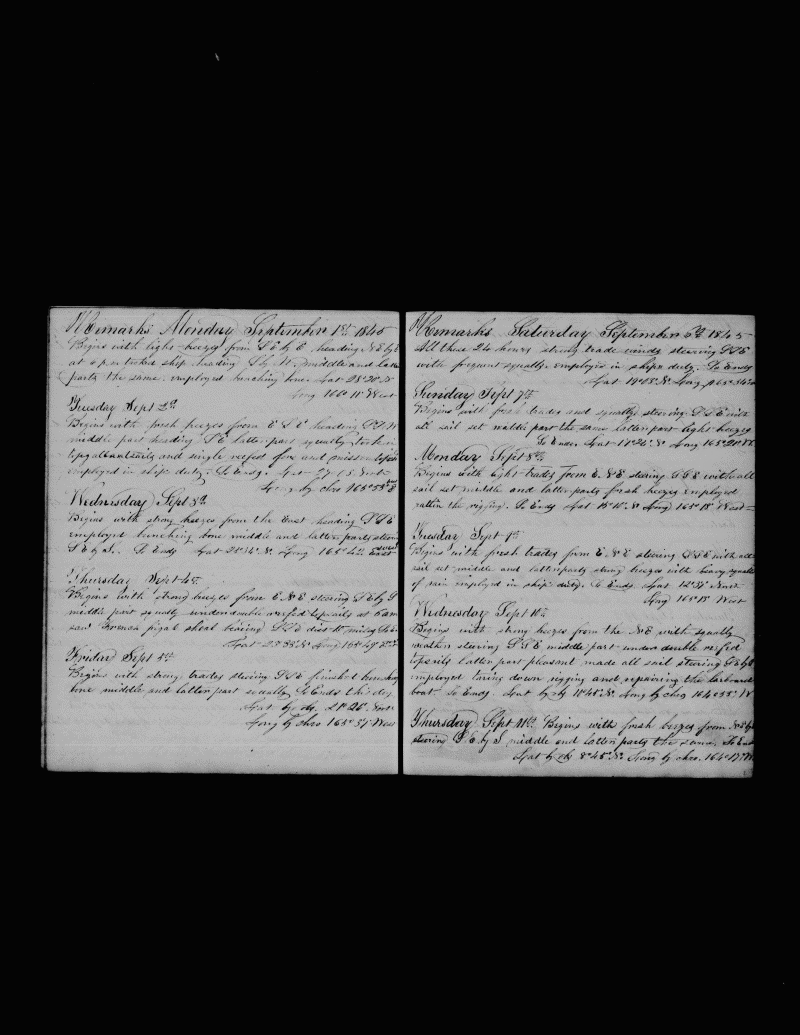 Remarks Monday September 1st 1845
Begins with light breezes from S E by E heading N E by E
at 6 p m tacked ship heading S by W middle and latter
parts the same employed bunching bone Lat 28°20 N
Long 165° 11 West
Tuesday Sept 2d
Begins with fresh breezes from E S E heading S S W
middle part heading S E latter part squally took in
topgallantsails and single reefed fore and mizen topsails
employed in ship duty. So Ends. Lat 27.15 North
Long by chro 165°55
Wednesday Sept 3d
Begins with strong breezes from the East heading S S E
employed bunching bone middle and latter parts steering
S E by S. So Ends Lat N. Long 165°42 West
Thursday Sept 4th
Begins with strong breezes from E N E steering S E by S
middle part squally under double reefed topsails at 6 am
saw French shoal bearing S S E dist 10 miles So E.
Lat 23°38 N Long 165°49 West
Friday Sept 5th
Begins with strong trades steering S S E finished bunching
bone middle and latter part squally So Ends this day
Lat by ob. 21°26 North
Long by chro 165°37 West
Remarks Saturday September 6th 1845
All these 24 hours strong trade winds steering S S E
with frequent squalls employed in ships duty. So Ends
Lat 19°03 N Long 165°34 W
Sunday Sept 7th
Begins with fresh trades and squally steering S S E with
all sail set middle part the same latter part light breezes
So Ends Lat 17°26 N Long 165°21 W
Monday Sept 8th
Begins with light trades from E. N E steering S S E with all
sail set middle and latter parts fresh breezes employed
rattling the rigging. So Ends Lat N Long 165°18 West
Tuesday Sept
Begins with fresh trades from E N E steering S S E with all
sail set middle and latter parts strong breezes with heavy squalls
of rain employed in ship duty. So Ends. Lat North
Long 165°18 West
Wednesday Sept 10th
Begins with strong breezes from the N E with squally
weather steering S S E middle part under double reefed
topsails latter part pleasant made all sail steering S E by S
employed taring down rigging and repairing the larboard
boat. So Ends. Lat by ob 11°48 N. Long by chro 164°55 W
Thursday Sept 11th. Begins with fresh breezes from N E by E
steering S. E. by S middle and latter parts the same. So Ends
Lat by ob 8°45 N. Long by chro. 164°17 W